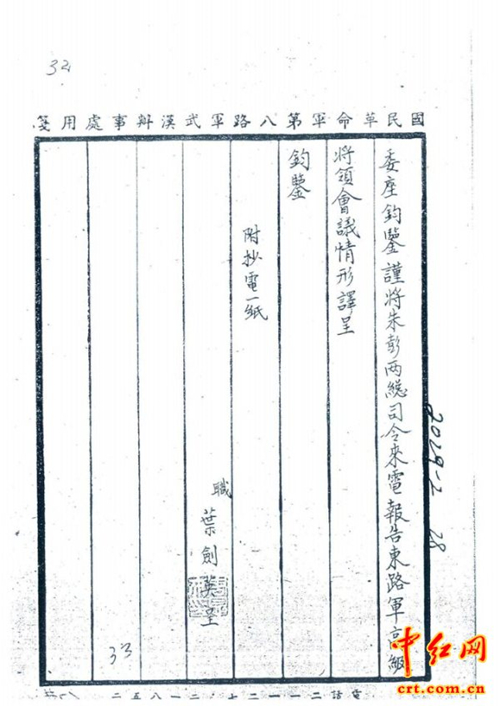 32
國民革命軍第八路軍武漢辦事處用箋
委座鈞鑒謹將朱彭兩總司令來電報告東路軍高級
將領會議情形譯呈
鈞鑒
附抄電一紙
職 葉劍英呈
2029-2 28
33
中红网
crt.com.cn